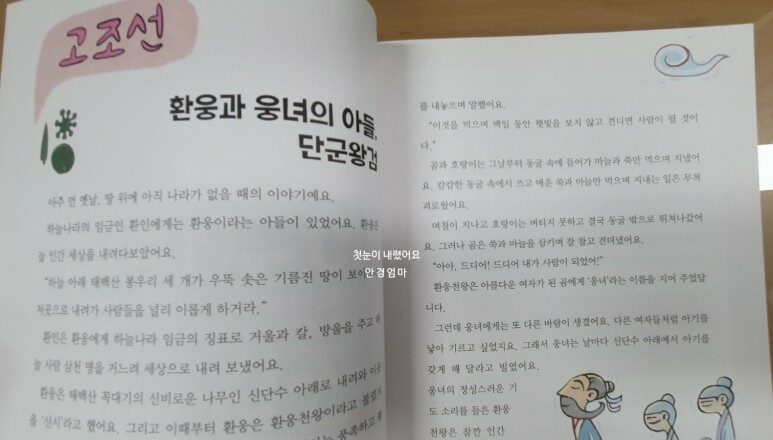 고조선
환웅과 웅녀의 아들,
단군왕검
아주 먼 옛날, 땅 위에 아직 나라가 없을 때의 이야기예요.
하늘나라의 임금인 환인에게는 환웅이라는 아들이 있었어요. 환웅은
늘 인간 세상을 내려다보았어요.
"하늘 아래 태백산 봉우리 세 개가 우뚝 솟은 기름진 땅이 보이
저곳으로 내려가 사람들을 널리 이롭게 하거라."
환인은 환웅에게 하늘나라 임금의 징표로 거울과 칼, 방울을 주고 하
늘 사람 삼천 명을 거느려 세상으로 내려 보냈어요.
환웅은 태백산 꼭대기의 신비로운 나무인 신단수 아래로 내려와 이곳
을 '신시'라고 했어요. 그리고 이때부터 환웅은 환웅천왕이라고 불렸지
를 내놓으며 말했어요.
"이것을 먹으며 백일 동안 햇빛을 보지 않고 견디면 사람이 될 것이
다."
곰과 호랑이는 그날부터 동굴 속에 들어가 마늘과 쑥만 먹으며 지냈어
요. 캄캄한 동굴 속에서 쓰고 매운 쑥과 마늘만 먹으며 지내는 일은 무척
괴로웠어요.
며칠이 지나고 호랑이는 버티지 못하고 결국 동굴 밖으로 뛰쳐나갔어
요. 그러나 곰은 쑥과 마늘을 삼키며 잘 참고 견뎌냈어요.
"아아, 드디어! 드디어 내가 사람이 되었어!"
환웅천왕은 아름다운 여자가 된 곰에게 '웅녀'라는 이름을 지어 주었답
니다.
그런데 웅녀에게는 또 다른 바람이 생겼어요. 다른 여자들처럼 아기를
낳아 기르고 싶었지요. 그래서 웅녀는 날마다 신단수 아래에서 아기를
갖게 해 달라고 빌었어요.
웅녀의 정성스러운 기
도 소리를 들은 환웅
천왕은 잠깐 인간
첫눈이 내렸어요
안경엄마